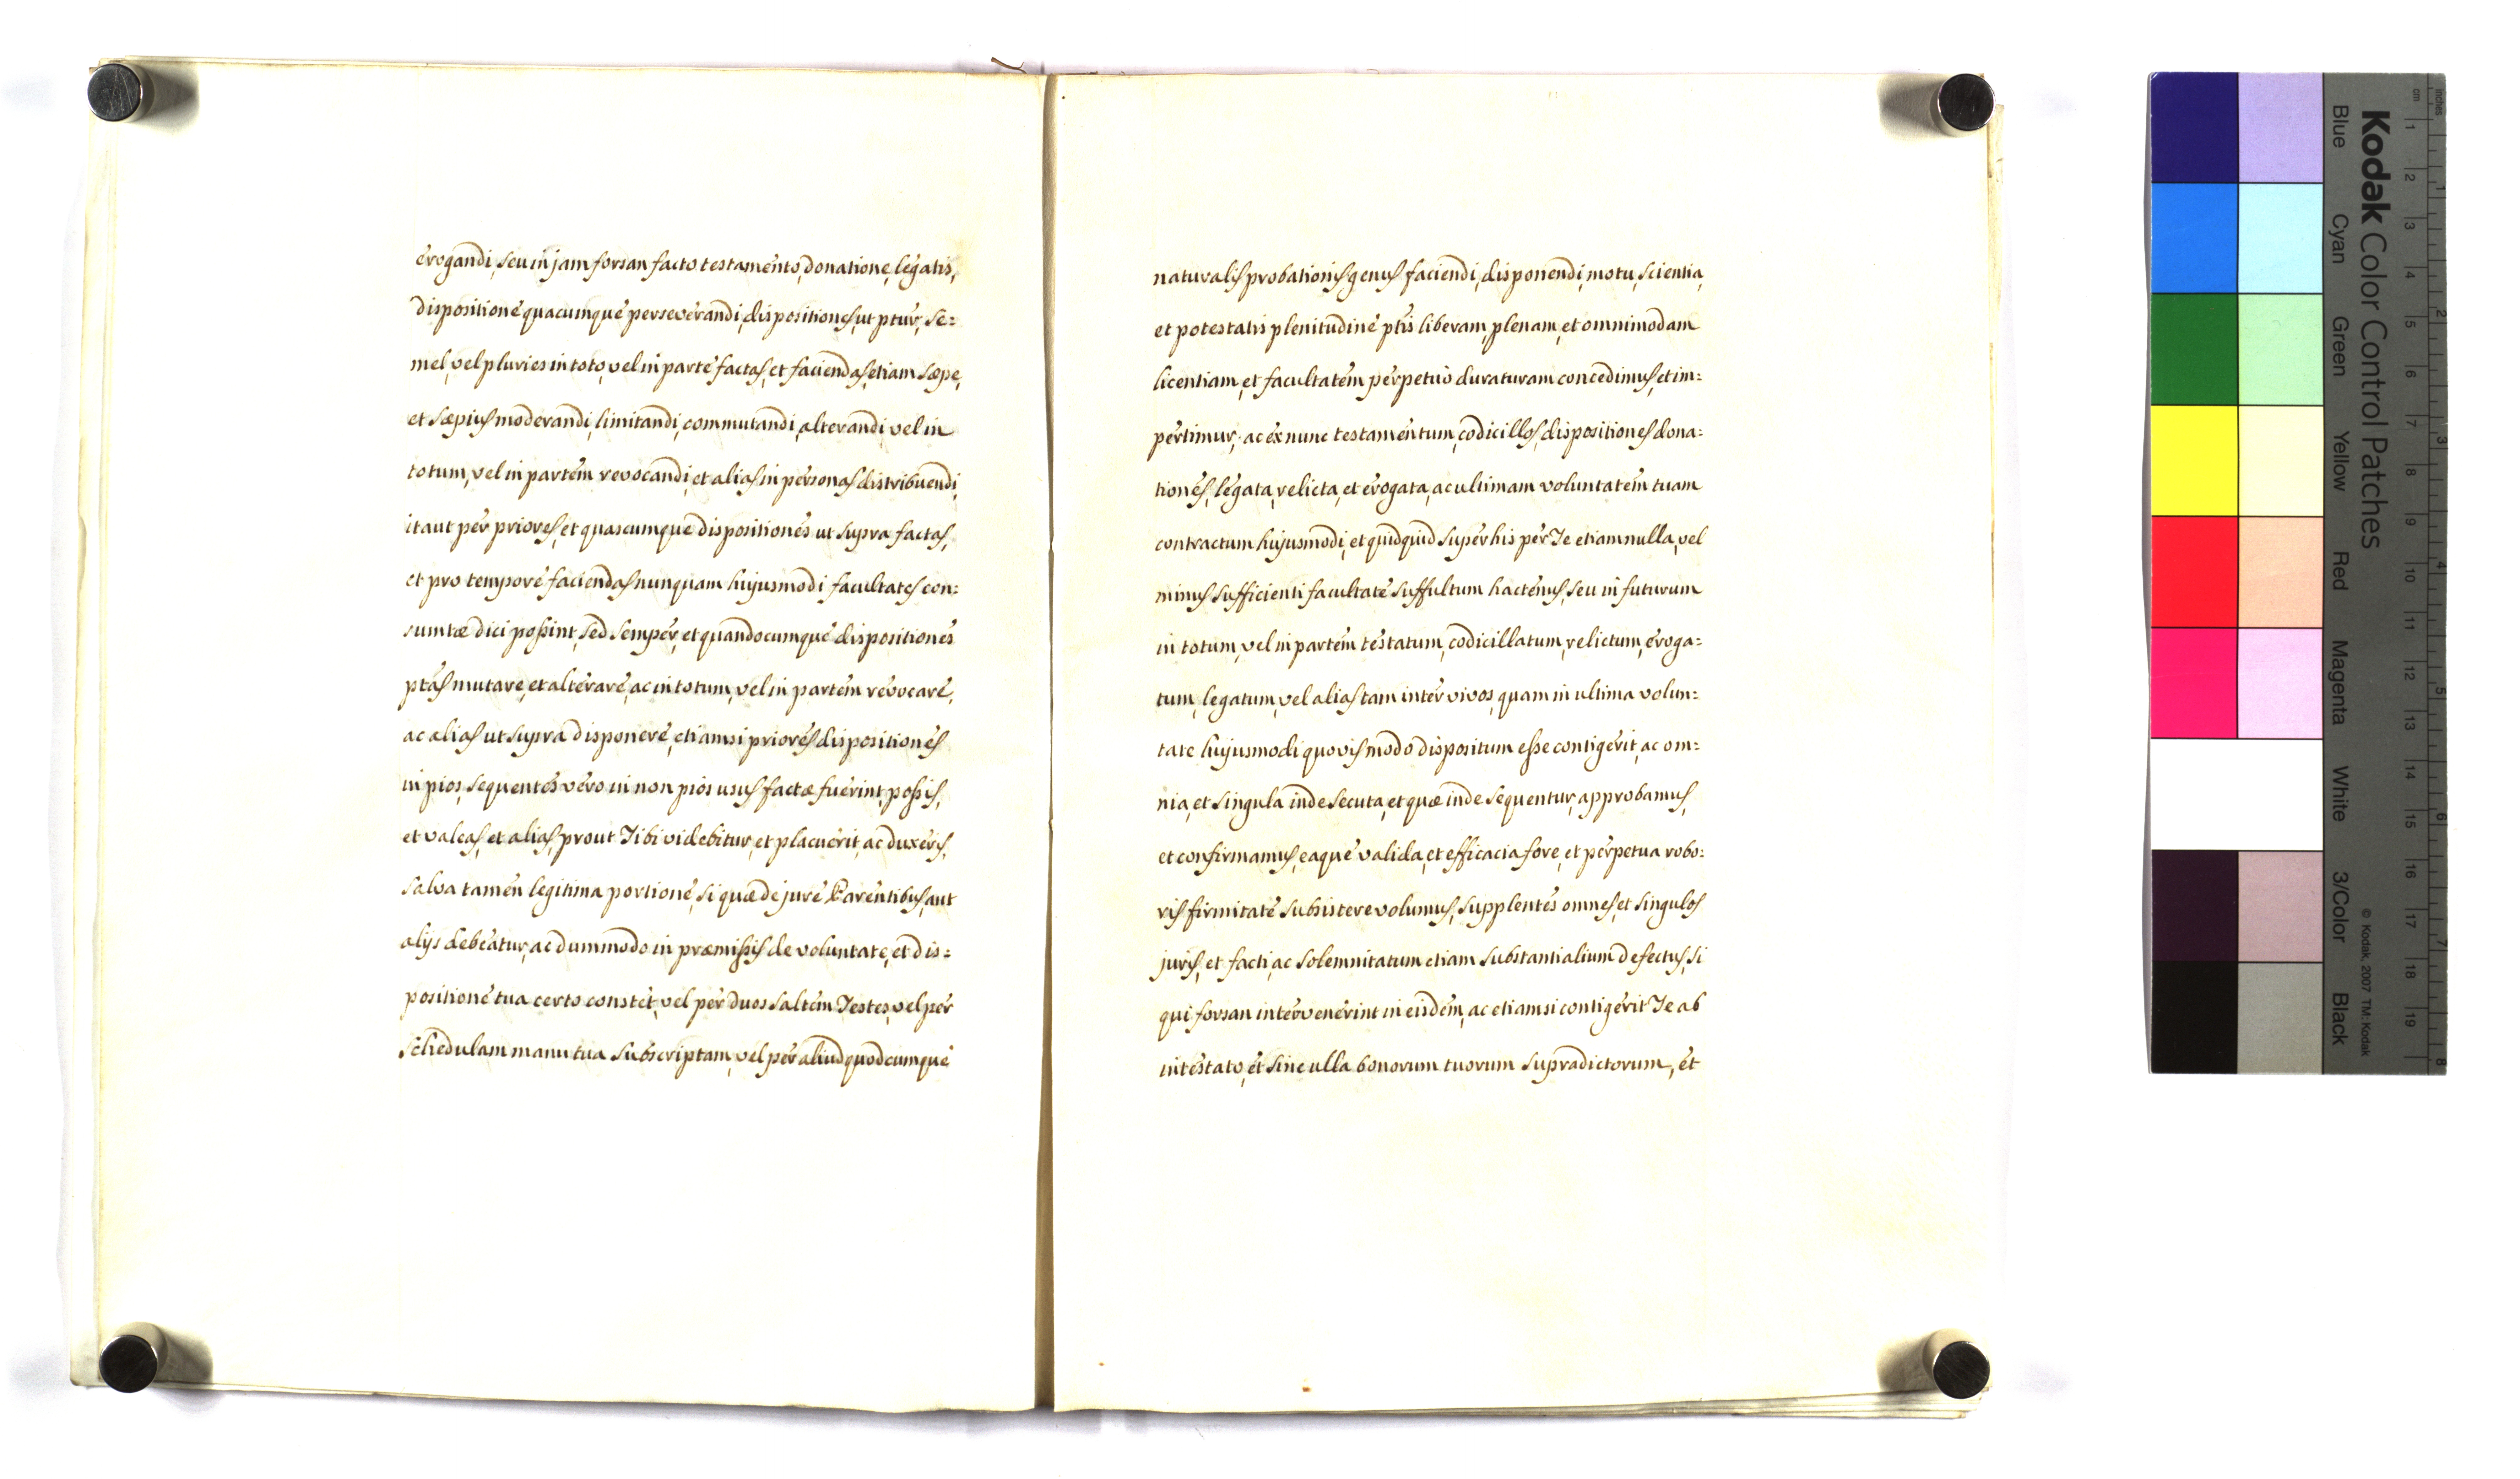 erogandi, seu in jam forsan facto testamento, donatione, legatis,
dispositione quacumque perseverandi, dispositiones, ut ptur, se=
mel, vel pluries in toto, vel in parte factas, et faciendas, etiam sæpe,
et sæpius moderandi, limitandi, commutandi, alterandi, vel in
totum, vel in partem revocandi, et alias in personas distribuendi,
itaut per priores, et quascumque dispositiones ut supra factas,
et pro tempore faciendas nunquam hujusmodi facultates con=
sumtæ dici possint, sed semper, et quandocumque dispositiones
ptas mutare, et alterare, ac in totum, vel in partem revocare,
ac alias ut supra disponere, etiamsi priores dispositiones
in pios, sequentes vero in non pios usus factæ fuerint, possis,
et valeas, et alias, prout Tibi videbitur, et placuerit, ac duxeris,
salva tamen legitima portione, si quæ de jure Parentibus, aut
alijs debeatur, ac dummodo in præmissis de voluntate, et dis=
positione tua certo constet, vel per duos saltem Testes, vel per
schedulam manu tua subscriptam, vel per aliud quodcumque
naturalis probationis genus faciendi, disponendi, motu, scientia,
et potestatis plenitudine ptis liberam, plenam, et omnimodam
licentiam, et facultatem perpetuò duraturam concedimus, et im=
pertimur, ac ex nunc testamentum, codicillos, dispositiones dona=
tiones, legata, relicta, et erogata, ac ultimam voluntatem tuam
contractum hujusmodi, et quidquid super his per Te etiam nulla, vel
minus sufficienti facultate suffultum hactenus, seu in futurum
in totum, vel in partem testatum, codicillatum, relictum, eroga=
tum, legatum, vel alias tam inter vivos, quam in ultima volun=
tate hujusmodi quovis modo dispositum esse contigerit, ac om=
nia, et singula inde secuta, et quæ inde sequentur, approbamus,
et confirmamus, eaque valida, et efficacia fore, et perpetua robo=
ris firmitate subsistere volumus, supplentes omnes, et singulos
juris, et facti, ac solemnitatum etiam substantialium defectus, si
qui forsan intervenerint in eisdem, ac etiamsi contigerit Te ab
intestato, et sine ulla bonorum tuorum supradictorum, et
Kodak Color Control Patches
Blue Cyan Green Yellow Red Magenta White 3/Color Black
© Kodak, 2007 TM: Kodak
inches 1 2 3 4 5 6 7 8
cm 1 2 3 4 5 6 7 8 9 10 11 12 13 14 15 16 17 18 19